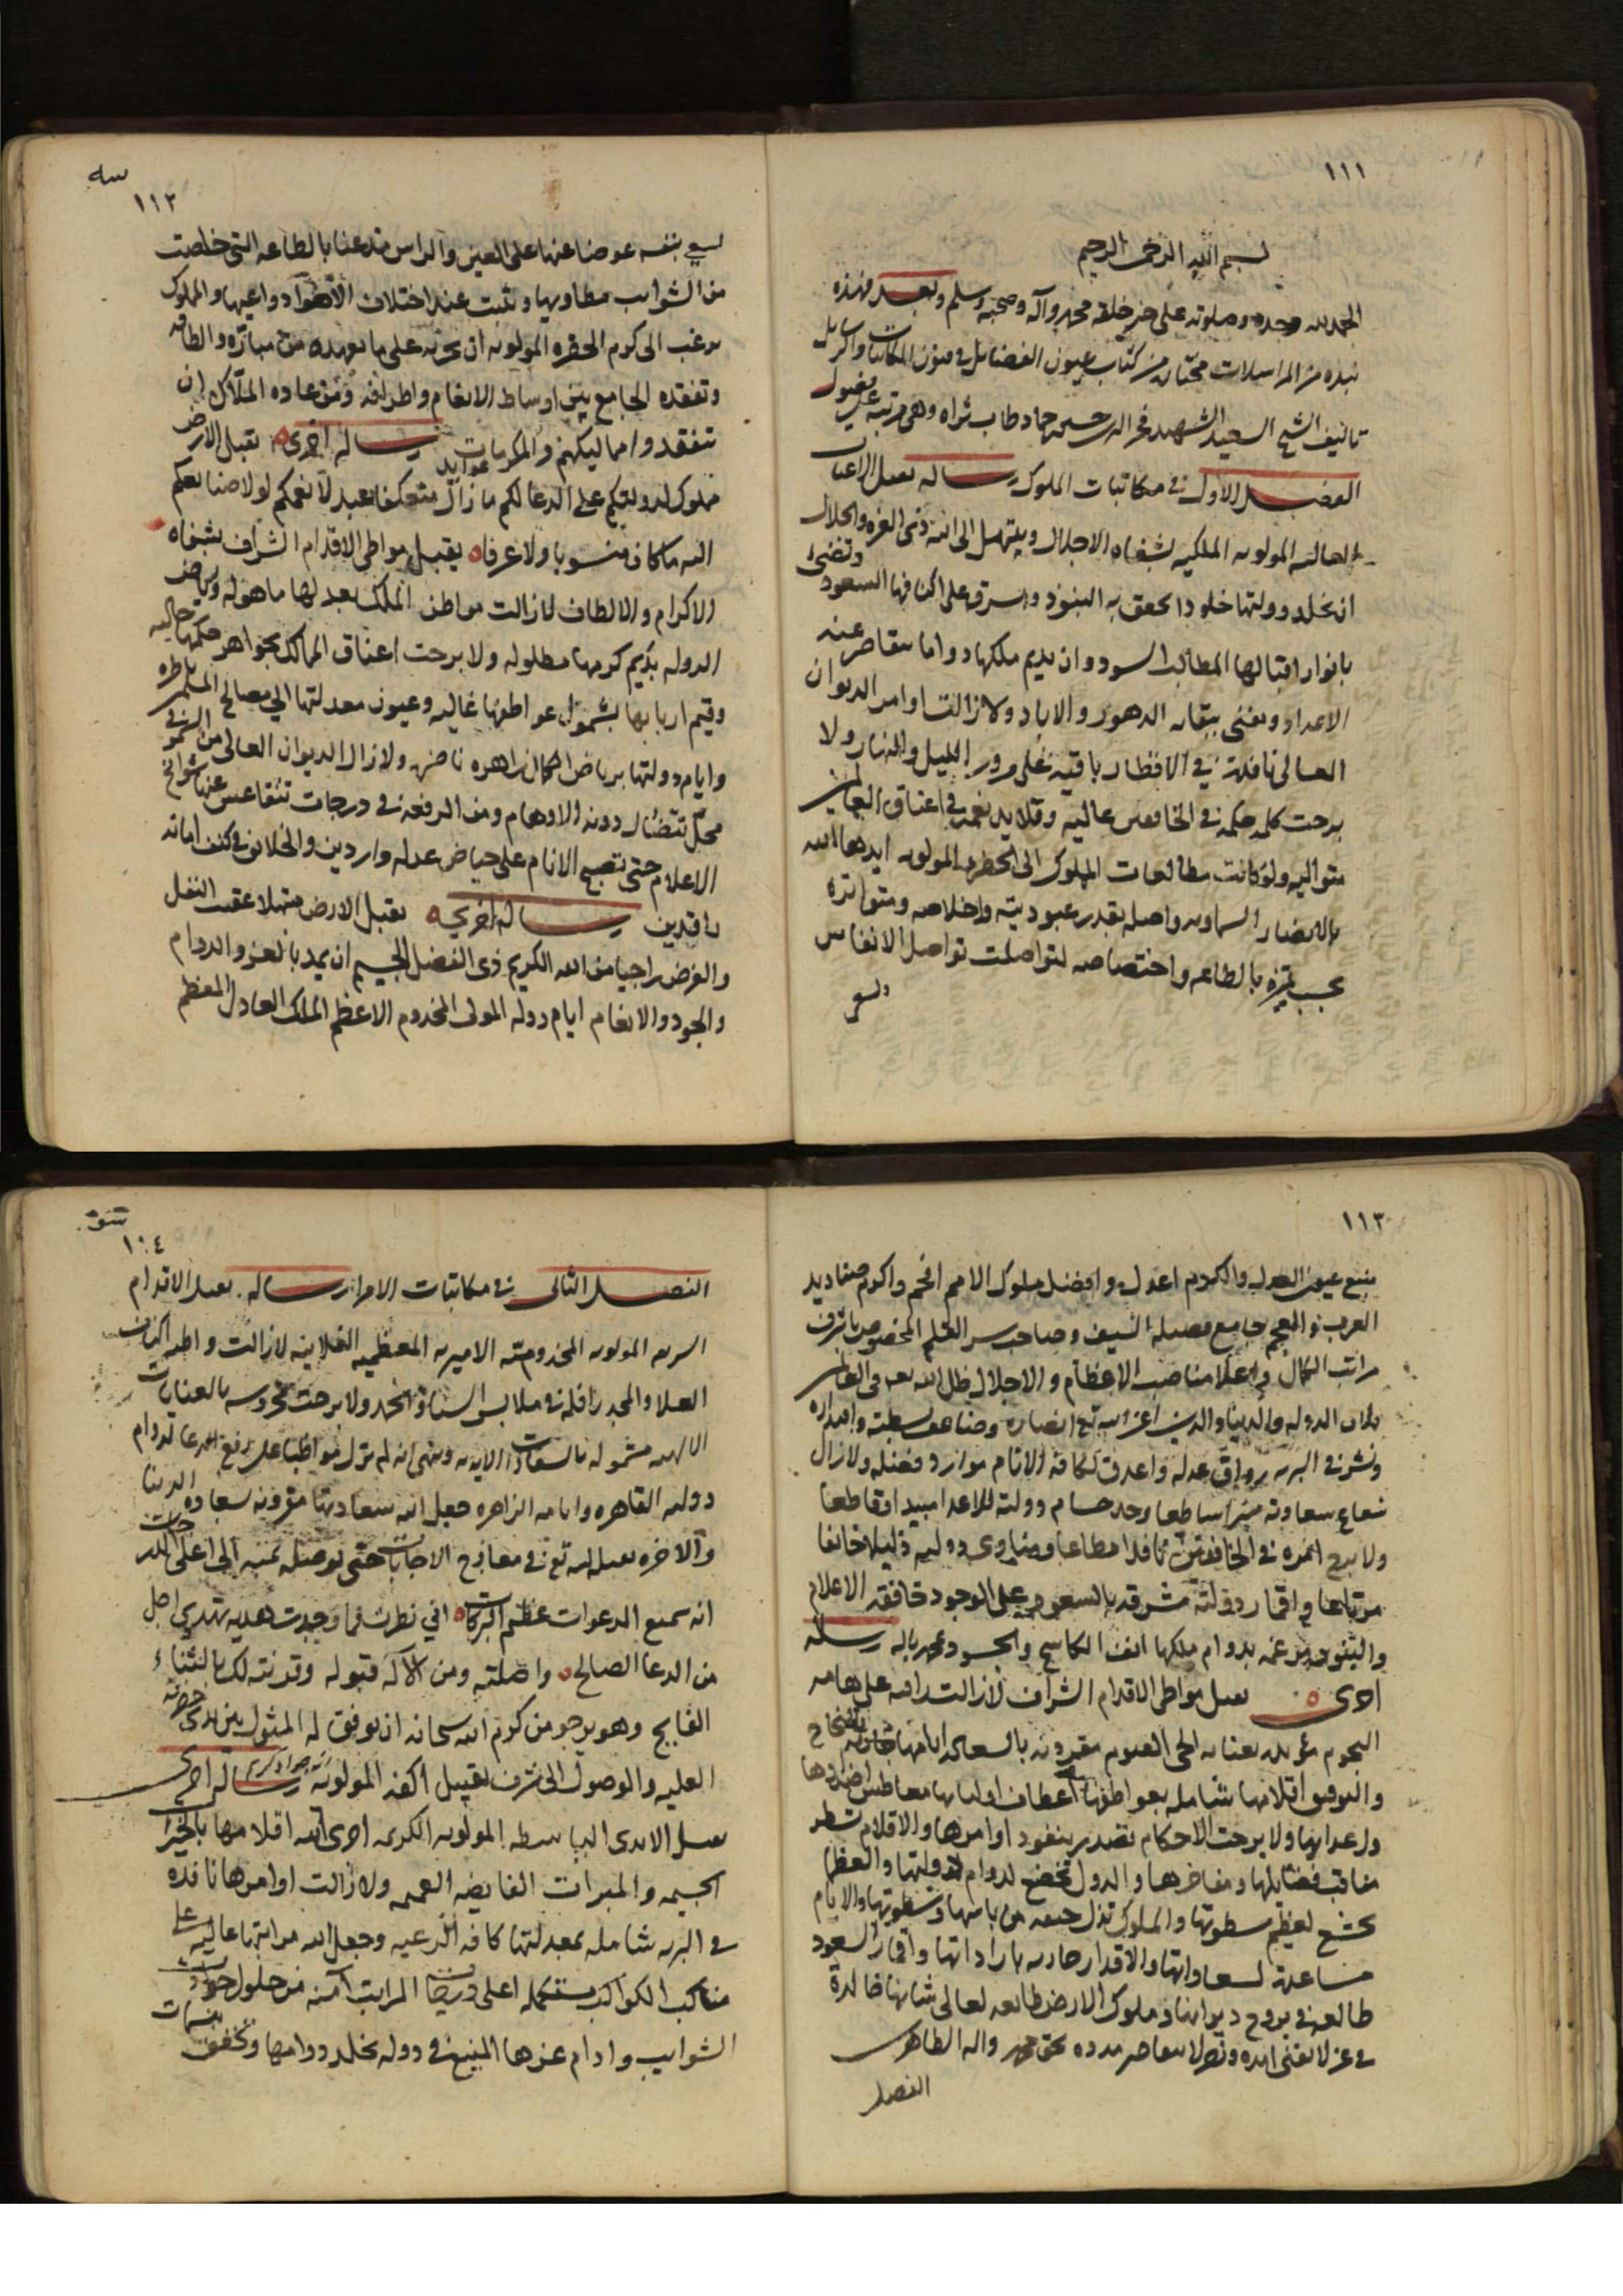 ١١١
بسم الله الرحمن الرحيم
الحمد لله وحده وصلوته على خير خلقه محمد وآله وصحبه وسلم وبعد فهذه
نبذه من المراسلات مختاره من كتاب عيون الفضايل في فنون المكاتبات والرسايل
تاليف الشيخ السعيد الشهيد فخر الدين حسين حماد طاب ثراه وهي مرتبه على فصول
الفصل الاول في مكاتبات الملوك رساله يقبل الاعتاب
العاليه المولويه الملكيه بشفاه الاجلال ويبتهل الى الله ذي العزه والجلال
ان يخلد دولتها خلودا يخفق به البنود ويشرق على اكنافها السعود وتضئ
بانوار اقبالها المطالب السود وان يديم ملكها دواما يتقاصر عنه
الاعداد ويفنى ببقايه الدهور والاباد ولا زالت اوامر الديوان
العالى نافذة في الاقطار باقية على مرور الليل والنهار ولا
برحت كلمه حكمه في الخافقين عاليه وقلايد نعمه في اعناق العالمين
متواليه ولو كانت مطالعات المملوك الى الحضره المولويه ايدها الله
بالانصار السماويه واصله بقدر عبوديته واخلاصه ومتواتره
بحسب تميزه بالطاعه واختصاصه لتواصلت تواصل الانفاس
ولسعى
١١٢
لسعى بنفسه عوضا عنها على العين والراس متدرعا بالطاعه التى خلصت
من الشوايب مطاويها وثبتت عند اختلاف الاهوآ دواعيها والمملوك
يرغب الى كرم الحضره المولويه ان تجريه على ما يعهده من مبارّه والطافه
وتفقده الجامع بين اوساط الانعام واطرافه ومن عاده الملاّك ان
تتفقدوا مماليكهم والمكرمات عوايد رساله اخرى يقبل الارض
مملوك لدولتكم على الدعا لكم ما زال منعكفا عبد لانعمكم لولا صنايعكم
اليه ما كان منسوبا ولا عرفا يقبل مواطى الاقدام الشراف بشفاه
الاكرام والالطاف لا زالت مواطن الملك بعدلها ماهوله ورياض
الدوله بديم كرمها مطلوله ولا برحت اعناق الممالك بجواهر حكمها حاليه
وقيم اربابها بشمول عواطفها غاليه وعيون معدلتها الى مصالح المسلمين ناظره
وايام دولتها برياض الكمال زاهره ناضره ولا زال الديوان العالى من السمو في
محل تتضاءل دونه الاوهام ومن الرفعه في درجات تتقاعس عنها شوامخ
الاعلام حتى يصبح الانام على حياض عدله واردين والخلايق في كنف امانه
راقدين رساله اخرى يقبل الارض مبتهلا عقيب النفل
والفرض راجيا من الله الكريم ذى الفضل الجسيم ان يمد بالعز والدوام
والجود والانعام ايام دوله المولى المخدوم الاعظم الملك العادل المعظم
١١٣
منبع عيون العدل والكرم اعدل وافضل ملوك الامم افخم واكرم صناديد
العرب والعجم جامع فضيله السيف وصاحب سر القلم المخصوص باشرف
مراتب الكمال واعلا مناصب الاعظام والاجلال ظل الله تعالى في العالمين
فلان الدوله والدنيا والدين اعز الله تع انصاره وضاعف بسطته واقتداره
ونشر في البريه رواق عدله واغدق لكافة الانام موارد فضله ولا زال
شعاع سعادته منيرا ساطعا وحد حسام دولته للاعدا مبيدا قاطعا
ولا برح امره في الخافقين نافدا مطاعا ومناوى دولته ذليلا خائفا
مرتاعا واقمار دولته مشرقه بالسعود وعلى الوجود خافقه الاعلام
والبنود مرغمه بدوام ملكها انف الكاسح والحسود بمحمد واله رساله
اخرى يقبل مواطى الاقدام الشراف لا زالت دايسه على هامه
النجوم مؤيده بعنايه الحى القيوم مقرونه بالسعاده ايامها بالنجاح
والتوفيق اقلامها شامله بعواطفها اعطاف اوليايها معاطس اضدادها
واعدايها ولا برحت الاحكام تصدر بنفود اوامرها والاقلام تسطر
مناقب فضايلها ومفاخرها والدول تخضع لدوام دولتها والعظما
تخشع لعظيم سطوتها والملوك تذل خيفه من باسها وسطوتها والايام
مساعدة لسعاداتها والاقدار جاريه باراداتها واقمار السعود
طالعه في بروج ديوانها وملوك الارض طايعه لعالى شانها خالدة
في عز لا يفنى امده ونصر لا يتقاصر مدده بحق محمد واله الطاهرين
الفصل
١٠٤
الفصل الثانى في مكاتبات الامرا رساله يقبل الاقدام
السريه المولويه المخدوميه الاميريه المعظميه الفلانيه لا زالت
العلا والمجد رافله في ملابس السنا والحمد ولا برحت محروسه بالعنايات
الالهيه مشموله بالسعادات الابديه وينهى انه لم يزل مواظبا على رفع الدعا لدوام
دولته القاهره وايامه الزاهره جعل الله سعادتها مقرونه بسعاده الدنيا
والاخره تقبله الله تع في معارج الاجابات حتى يوصله بمنه الى اعلى الدرجات
انه سميع الدعوات عظيم البركات انى نظرت فما وجدت هديه تهدى اجل
من الدعا الصالح واصلته ومن الاله قبوله وقرنته لك بالثناء
الفايح وهو يرجو من كرم الله سبحانه ان يوفق له المثول بين يدى حضرته
العليه والوصول الى شرف تقبيل اكفه المولويه انه جواد كريم رساله اخرى
يقبل الايدى الباسطه المولويه الكريمه اجرى الله اقلامها بالخيرات
الجسيمه والمبرات الفايضه العميمه ولا زالت اوامرها نافذه
في البريه شامله بمعدلتها كافه الرعيه وجعل الله مراتبها عاليه على
مناكب الكواكب مستكمله اعلى المراتب آمنه من حلول حوادث
الشوايب وادام عزها المنيع في دوله يخلد دوامها وتخفق